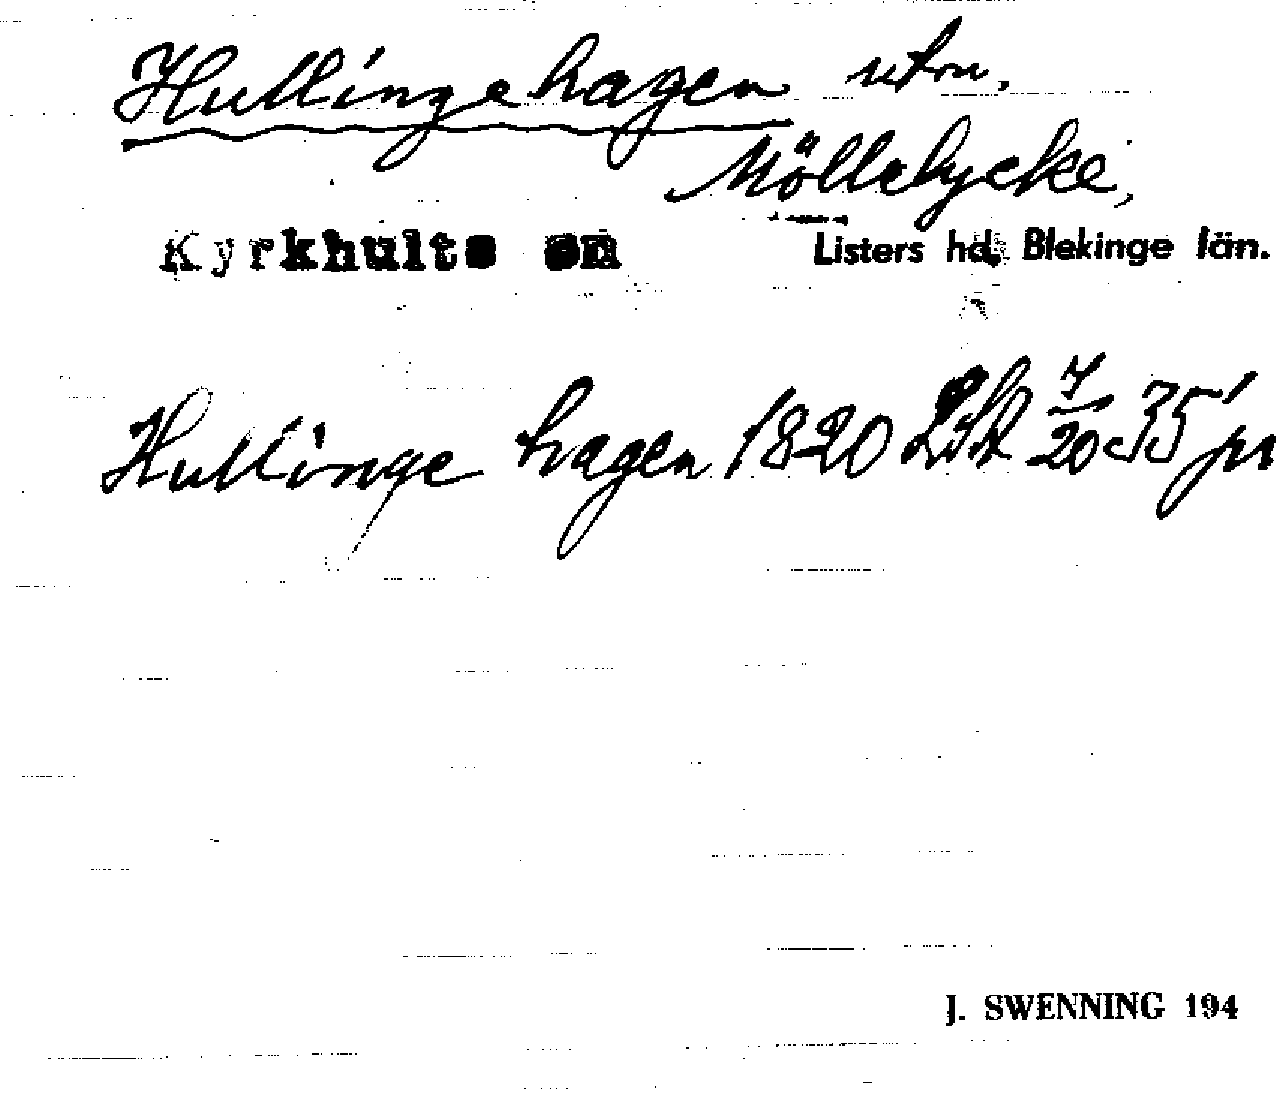 Hullingehagen utom,
Möllelycke,
Kyrkhults sn Listers hd, Blekinge län.
Hullinge hagen 1820 7/20 35
J. SWENNING 194